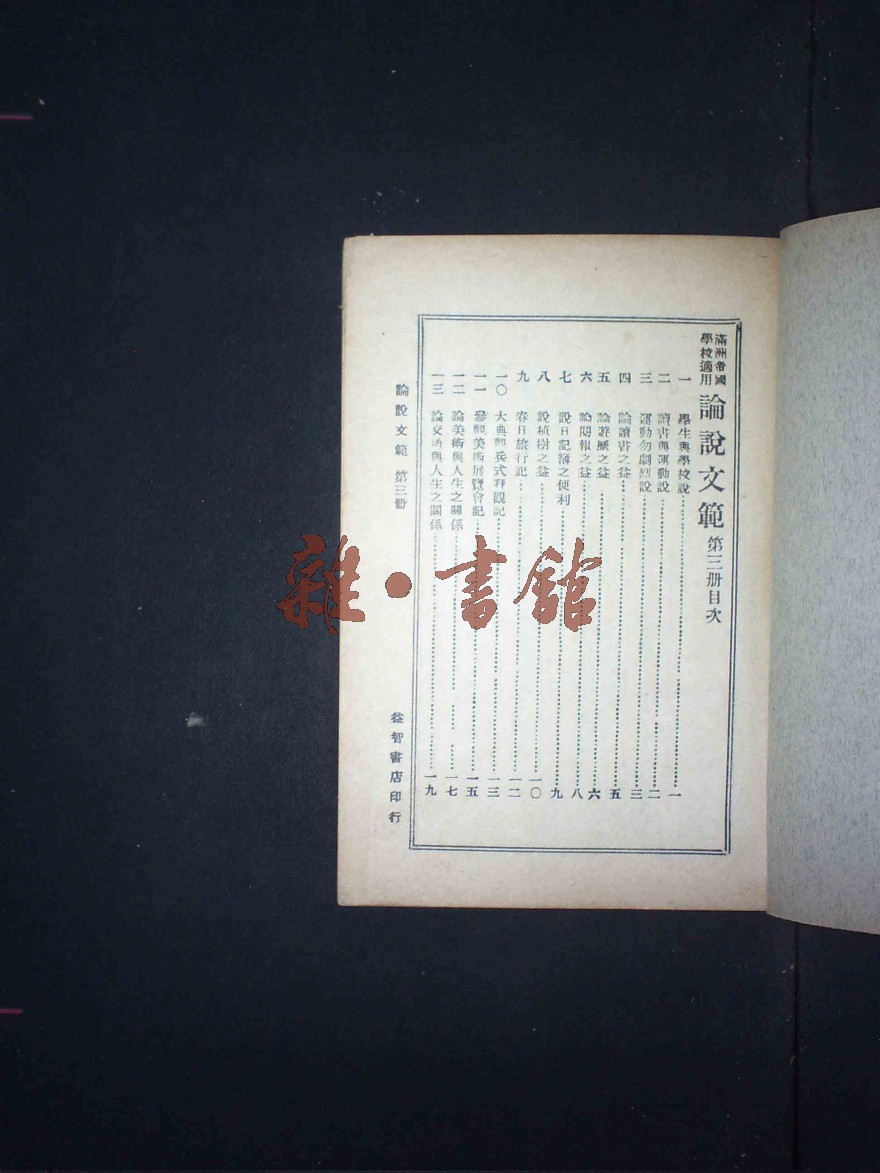 滿洲帝國
學校適用
論說文範 第三册目次
一 學生與學校說……一
二 讀書與運動說……二
三 運動勿劇烈說……三
四 論讀書之益……五
五 論遊歷之益……六
六 論閱報之益……八
七 說日記簿之便利……九
八 說植樹之益……一〇
九 春日旅行記……一二
一〇 大典觀兵式拜觀記……一三
一一 參觀美術展覽會記……一五
一二 論美術與人生之關係……一七
一三 論交通與人生之關係……一九
論說文範 第三册
益智書店印行
雜·書館